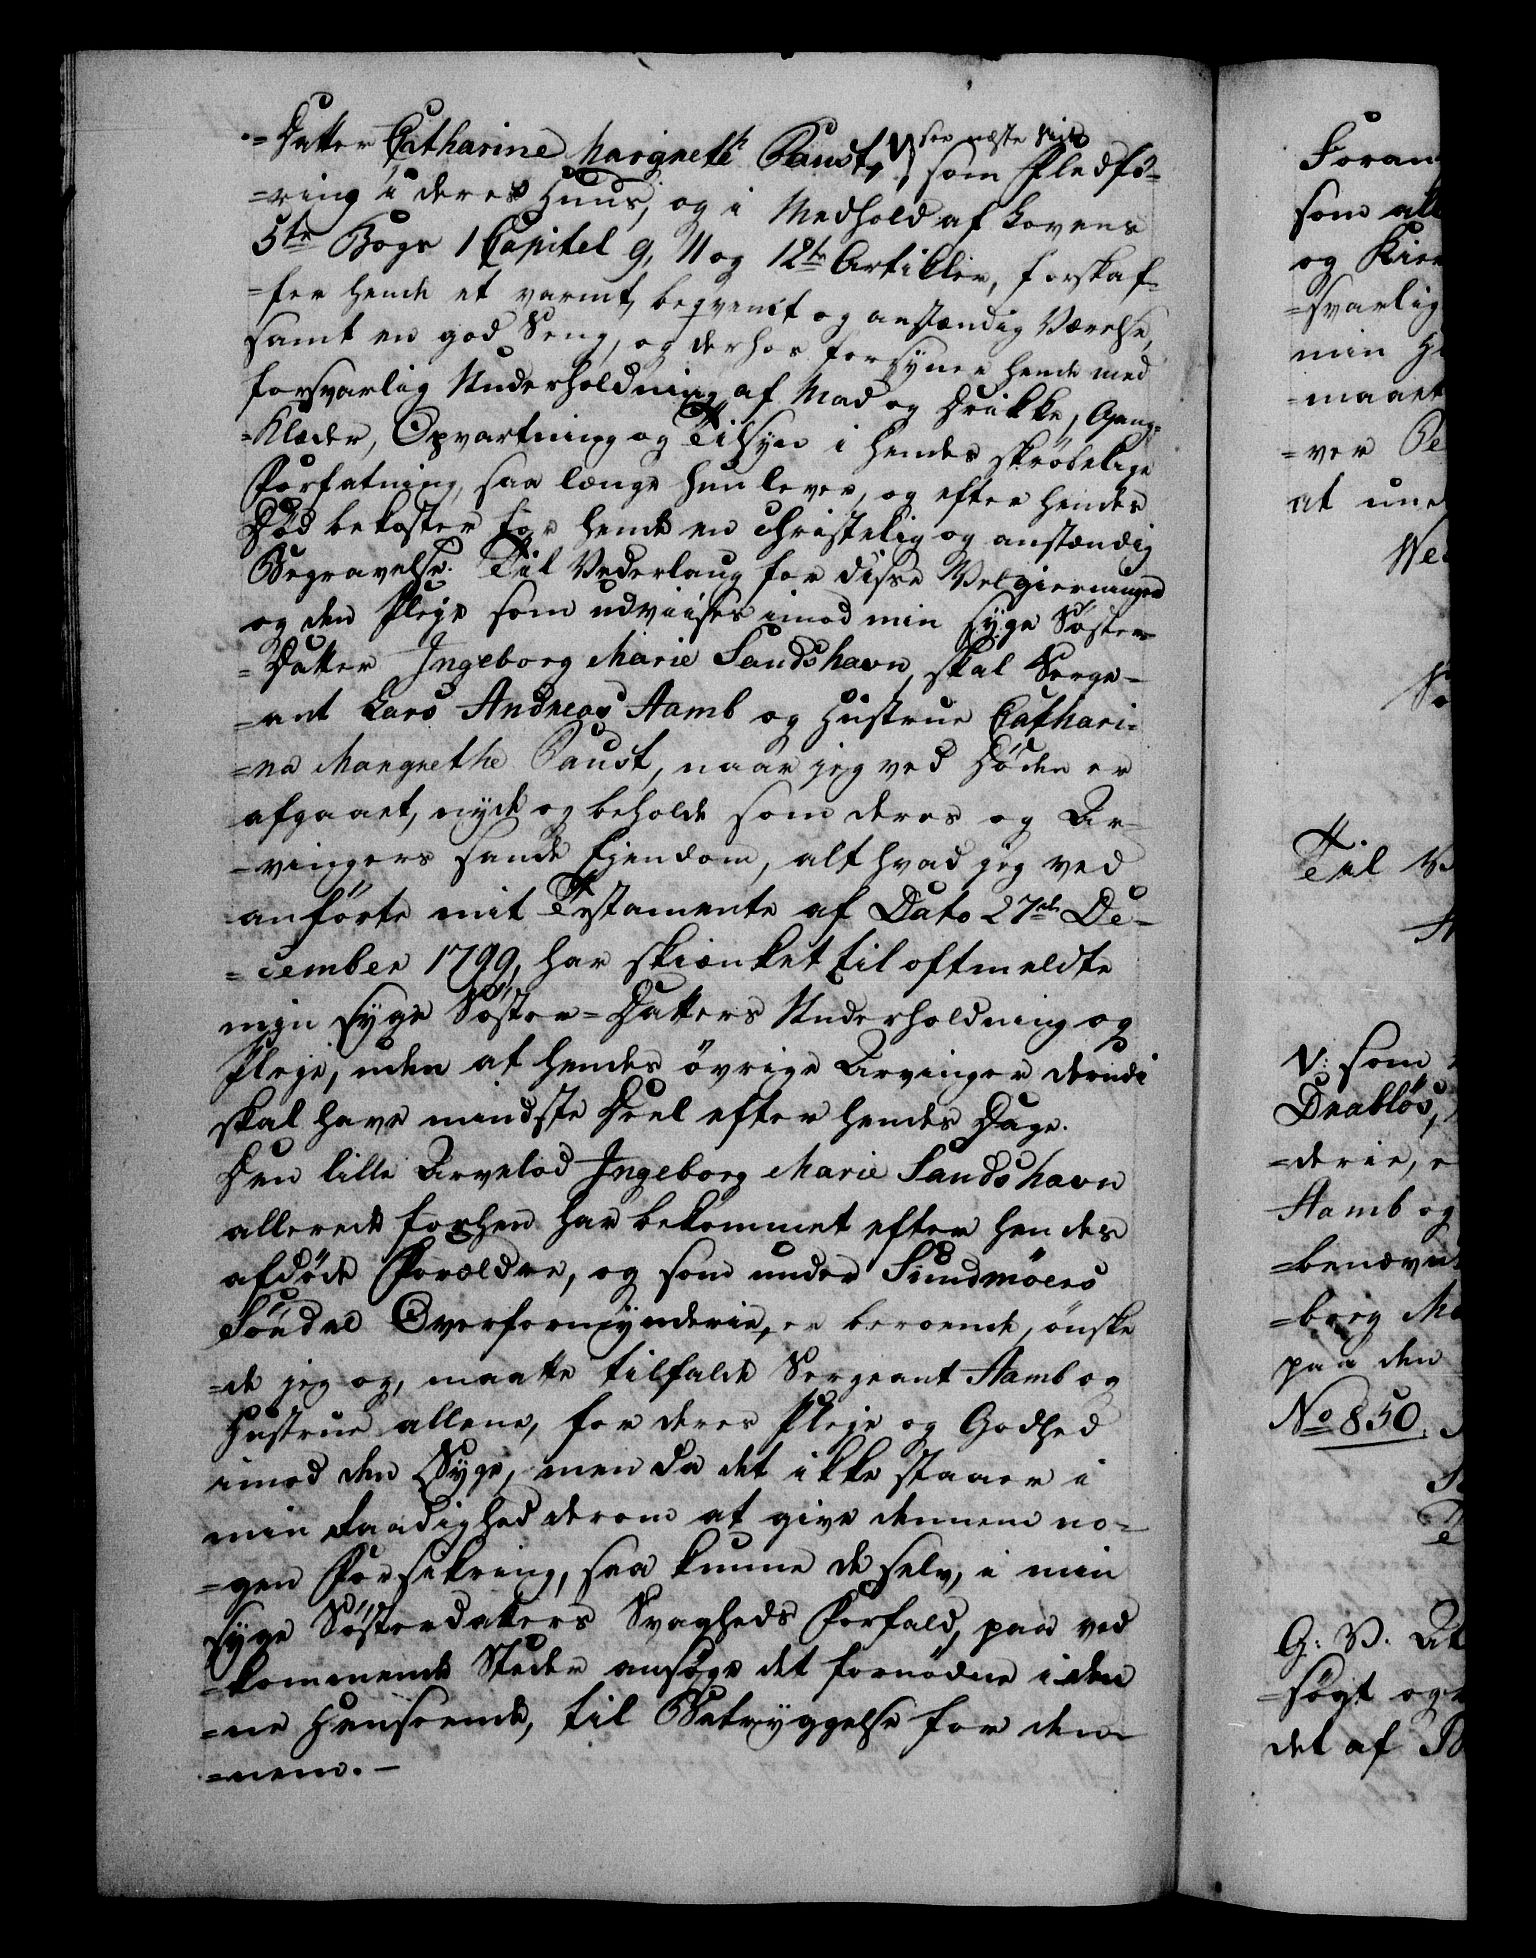 =Datter Catharine Margreth Paust, V: see næste Side som Fledfö=
=ring i deres Huus, og i Medhold af Lovens
5te Bogs 1 Capitel 9, 11 og 12te Artikler, forskaf=
=fer hende et varmt, beqvemt og anstændig Værelse,
samt en god Seng, og derhos forsyner hende med
forsvarlig Underholdning af Mad og Drikke, Gang=
=Klæder, Opvartning og Tilsyn i hendes skröbelige
Forfatning, saa længe hun lever, og efter hendes
Död bekoster for hende en Christelig og anstændig
Begravelse. Til Vederlaug for disse Velgierninger
og den Pleje som udviises imod min syge Söster
=Datter Ingeborg Marie Sandshavn, skal Serge-
=ant Lars Andreas Aamb og Hustrue Cathari=
=na Margrethe Paust, naar jeg ved Döden er
afgaaet, nyde og beholde som deres og Ar-
-vingers sande Ejendom, alt hvad jeg ved
anförte mit Testamente af Dato 27de De-
=cember 1799, har skiænket til oftmeldte
min syge Söster=Datters Underholdning og
Pleje, uden at hendes övrige Arvinger derudi
skal have mindste Deel efter hendes Dage.
Den lille Arvelod Ingeborg Marie Sandshavn
allerede forhen har bekommet efter hendes
afdöde Forældre, og som under Sundmöers
Söndre Overformynderie, er beroende, önske
=de jeg og, maatte tilfalde Sergeant Aamb og
Hustrue allene, for deres Pleje og Godhed
imod den Syge, men da det ikke staaer i
min Raadighed derom at give dennem no=
=gen Forsikring, saa kunne de selv, i min
syge Sösterdatters Svagheds Forfald, paa ved
=kommende Steder ansöge det fornödne i den
=ne Henseende, til Betryggelse for den
=nem. -
Foran
som all
og Kier
=svarlig
min H
=maaet
=ver Pe
at une
We
So
Til V
A
V: som
Drablös,
=derie, e
Aamb og
=benævn
=borg Ma
paa den
No 850.
G: V. At
=sögt og
det af